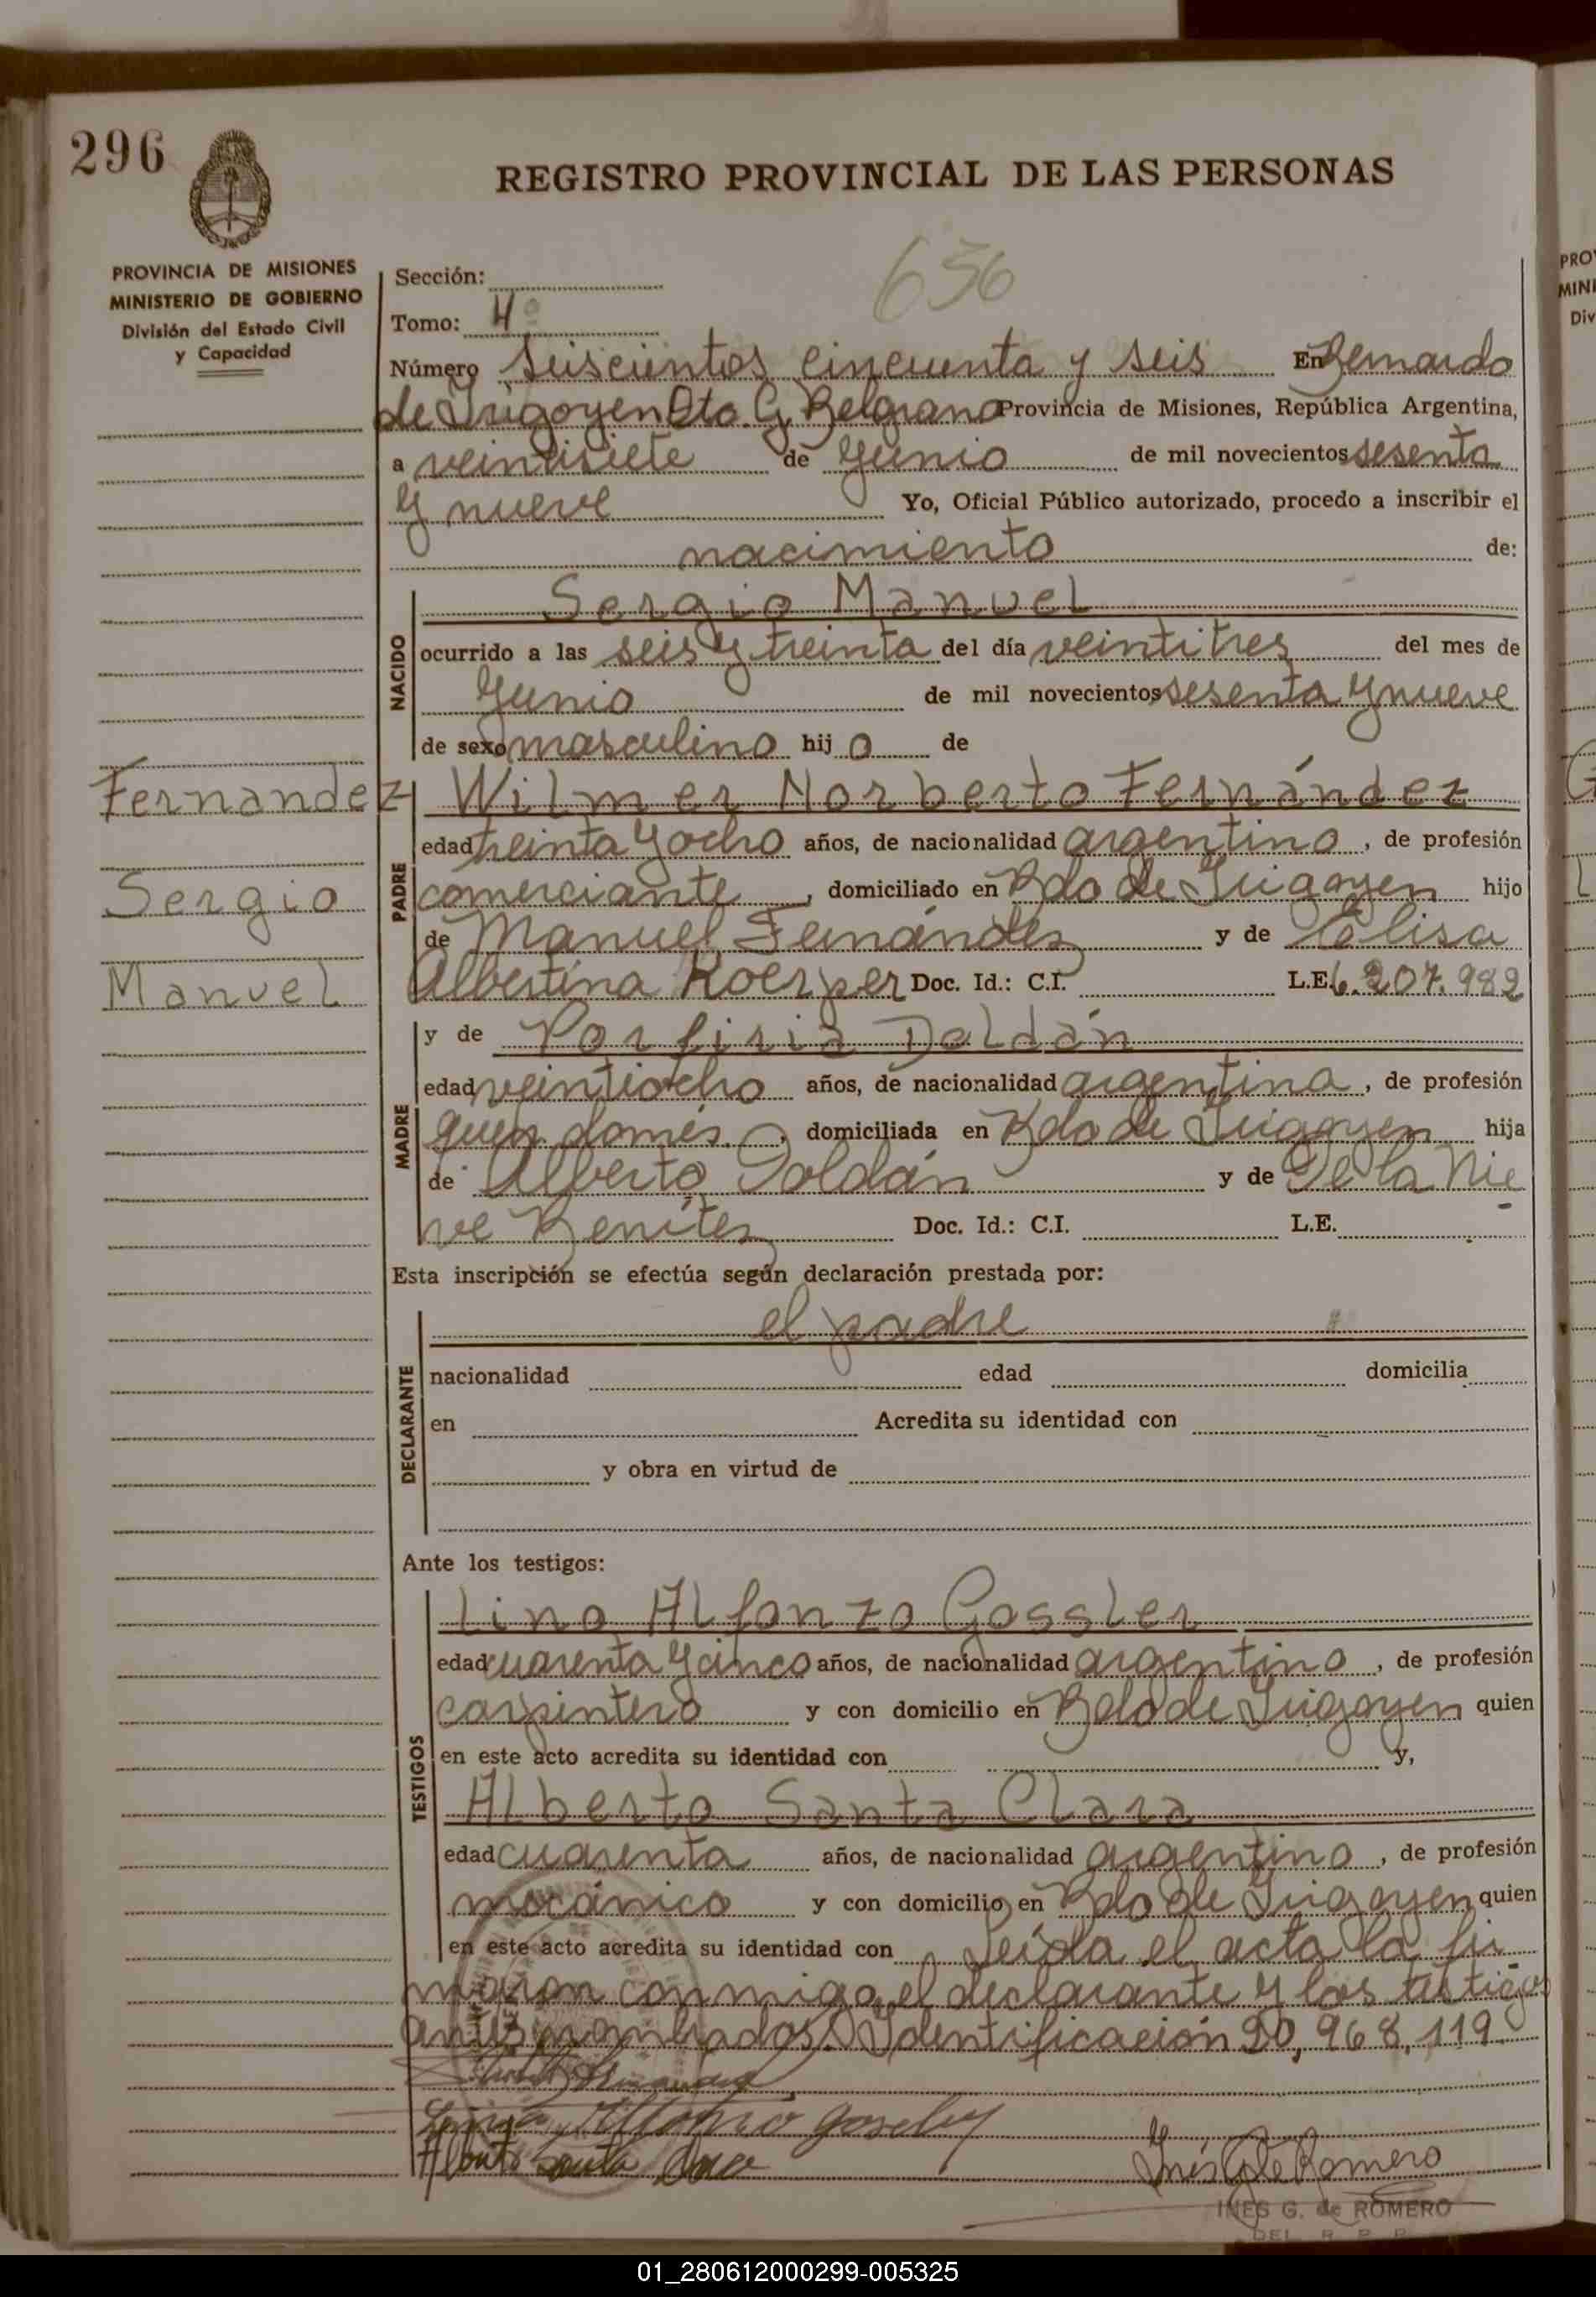 296
REGISTRO PROVINCIAL DE LAS PERSONAS
PROVINCIA DE MISIONES
MINISTERIO DE GOBIERNO
División del Estado Civil
y Capacidad
656
Sección:
Tomo: 4º
Número seiscientos cincuenta y seis En Bernardo
de Irigoyen Dto. G. Belgrano Provincia de Misiones, República Argentina,
a veintisiete de Junio de mil novecientos sesenta
y nueve Yo, Oficial Público autorizado, procedo a inscribir el
nacimiento de:
NACIDO
Sergio Manuel
ocurrido a las seis y treinta del día veintitres del mes de
Junio de mil novecientos sesenta y nueve
de sexo masculino hij o de
Fernandez
Sergio
Manuel
PADRE
Wilmer Norberto Fernández
edad treinta y ocho años, de nacionalidad argentino, de profesión
comerciante, domiciliado en Bdo de Irigoyen hijo
de Manuel Fernández y de Elisa
Albertina Koerper Doc. Id.: C.I. L.E. 6.207.982
MADRE
y de Porfiria Doldán
edad veintiocho años, de nacionalidad argentina, de profesión
queh. domés., domiciliada en Bdo de Irigoyen hija
de Alberto Doldán y de De la Nie
ve Benítez Doc. Id.: C.I. L.E.
Esta inscripción se efectúa según declaración prestada por:
DECLARANTE
el padre
nacionalidad edad domicilia
en Acredita su identidad con
y obra en virtud de
Ante los testigos:
TESTIGOS
Lino Alfonzo Gossler
edad cuarenta y cinco años, de nacionalidad argentino, de profesión
carpintero y con domicilio en Bdo de Irigoyen quien
en este acto acredita su identidad con y,
Alberto Santa Clara
edad cuarenta años, de nacionalidad argentino, de profesión
mecánico y con domicilio en Bdo de Irigoyen quien
en este acto acredita su identidad con Leída el acta la fir
maron conmigo, el declarante y los testigos
antes nombrados. Identificación 20,968,119.
Alberto Santa Clara
Inés G de Romero
INES G. de ROMERO
DEL. R. P. P.
PRO
MINI
Div
01_280612000299-005325